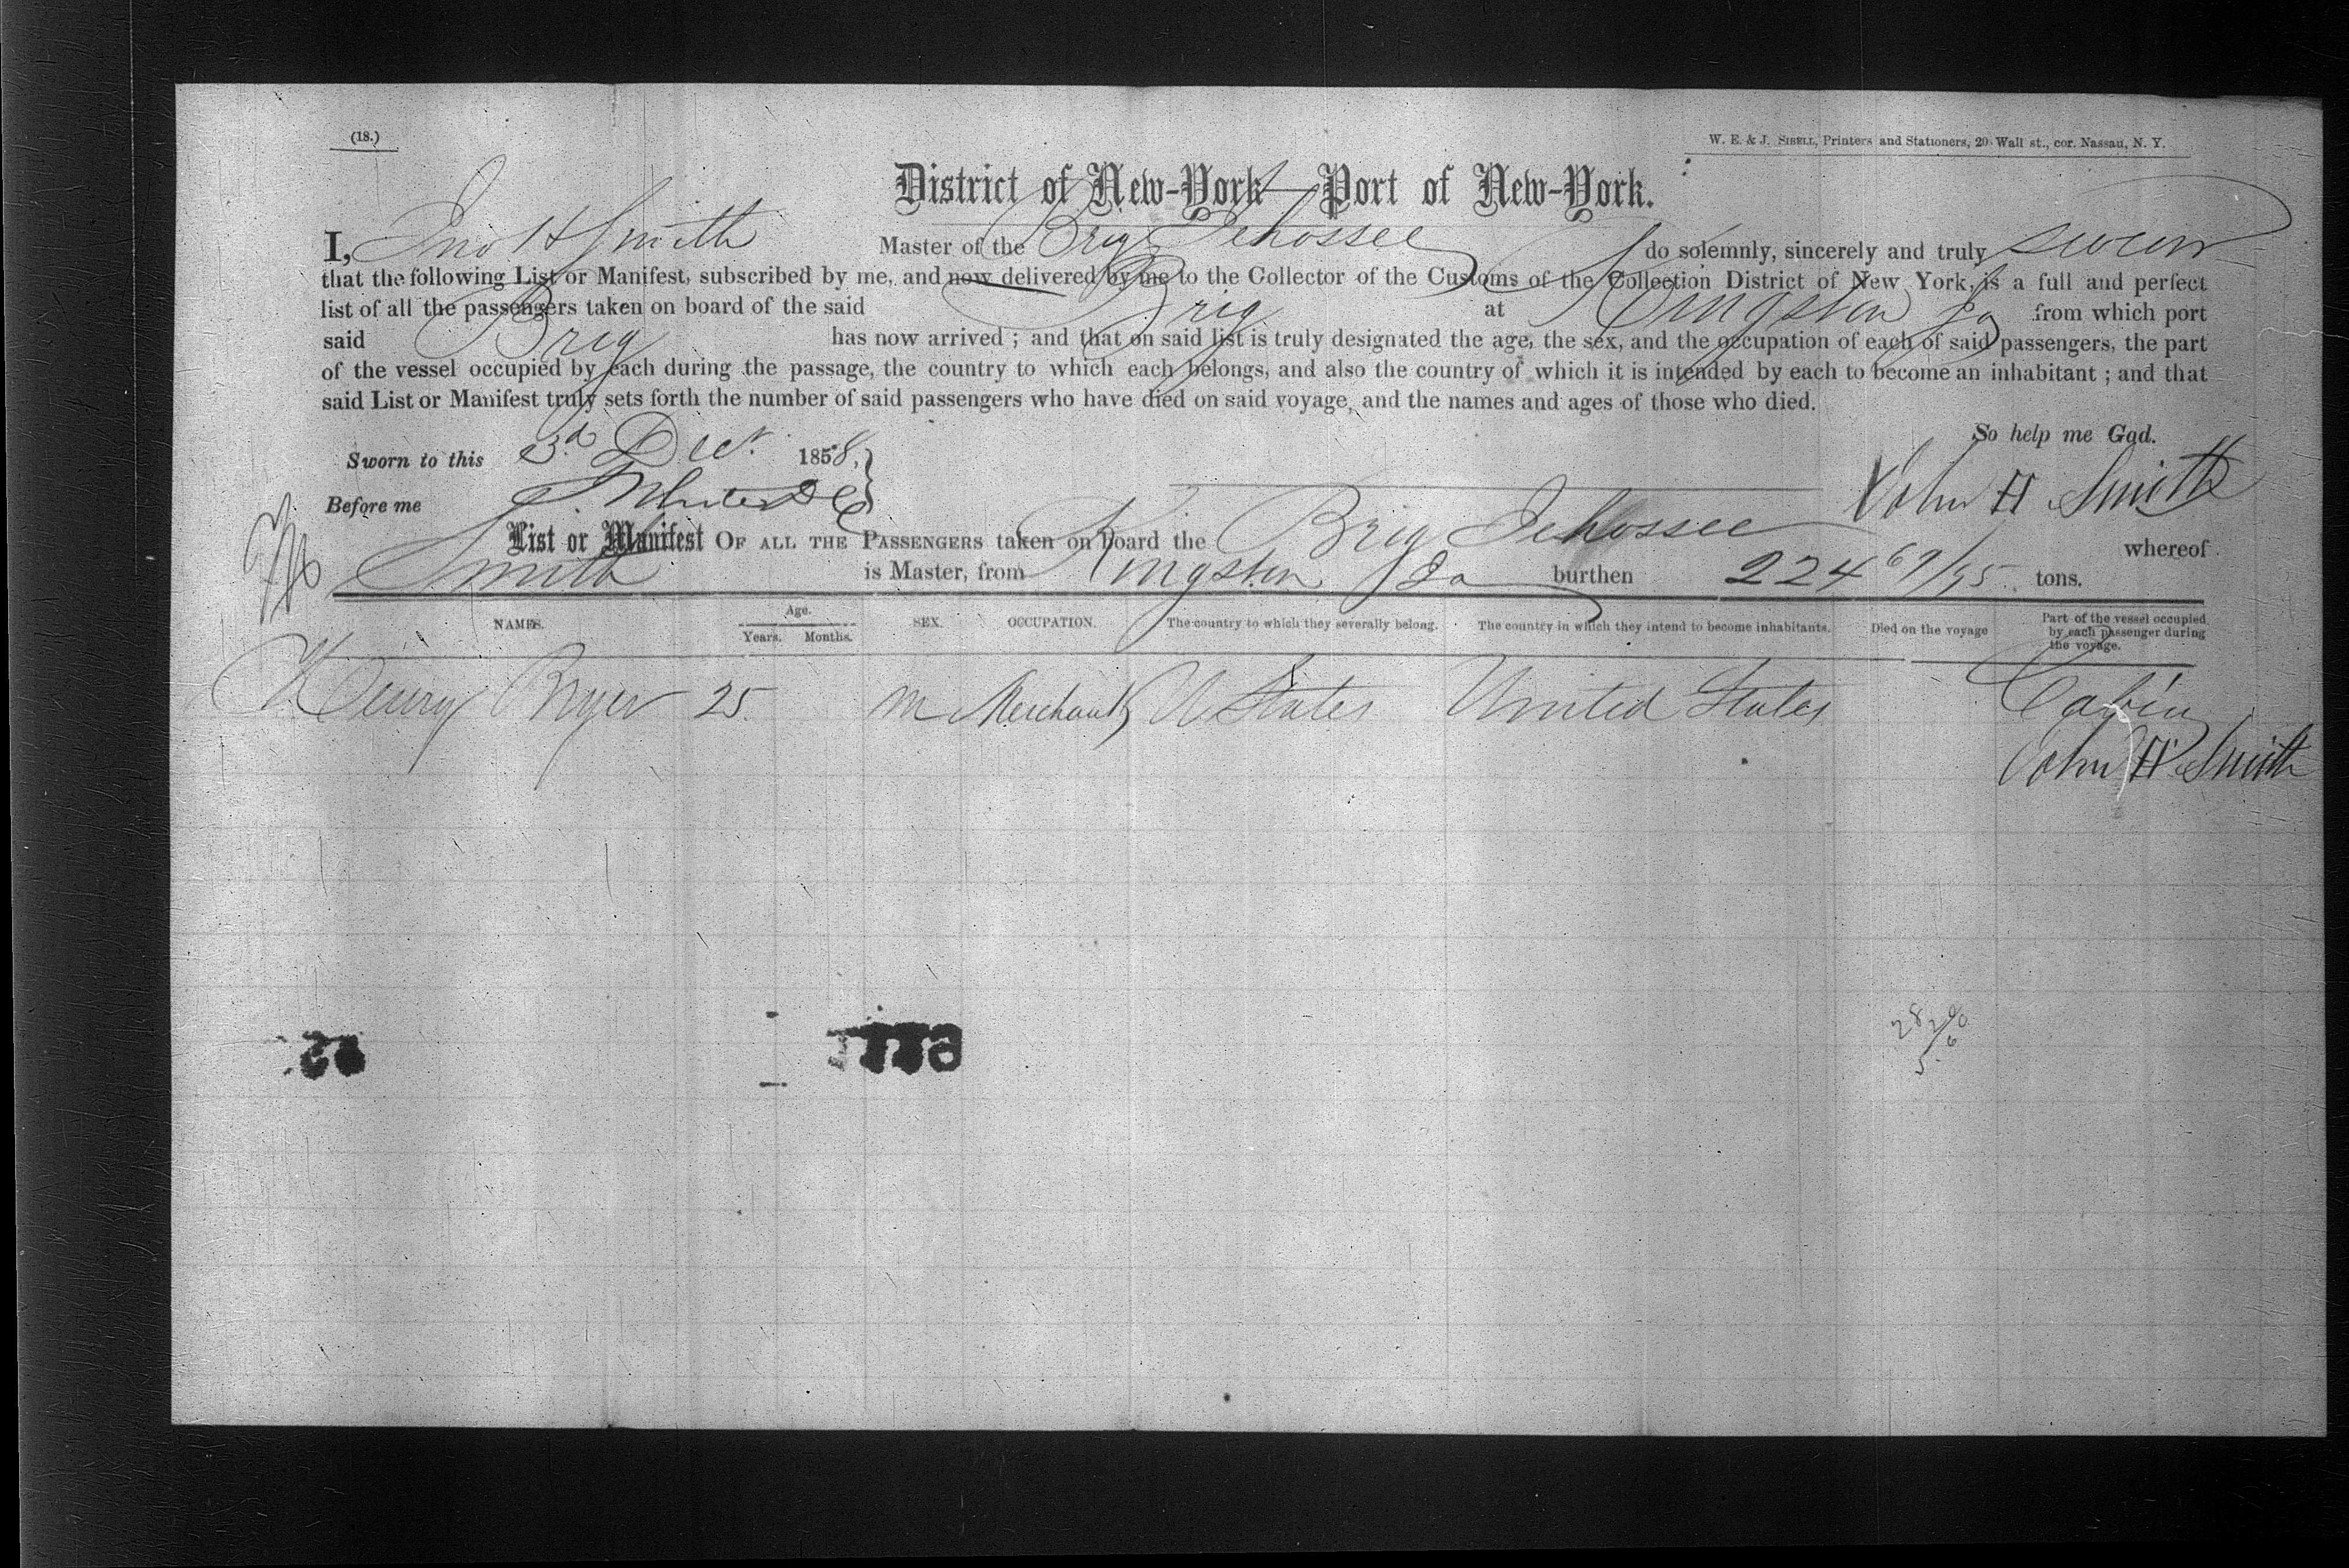 (18.)
W. E. & J. SIBELL, Printers and Stationers, 20 Wall st., cor. Nassau, N. Y.
District of New-York—Port of New-York.
I, Jno H Smith Master of the Brig Jehossee do solemnly, sincerely and truly swear
that the following List or Manifest, subscribed by me, and now delivered by me to the Collector of the Customs of the Collection District of New York, is a full and perfect
list of all the passengers taken on board of the said Brig at Kingston Ja from which port
said Brig has now arrived ; and that on said list is truly designated the age, the sex, and the occupation of each of said passengers, the part
of the vessel occupied by each during the passage, the country to which each belongs, and also the country of which it is intended by each to become an inhabitant ; and that
said List or Manifest truly sets forth the number of said passengers who have died on said voyage, and the names and ages of those who died.
So help me God.
Sworn to this 3d Decr 1858,
John H Smith
Before me
List or Manifest OF ALL THE PASSENGERS taken on board the Brig Jehossee whereof
Smith is Master, from Kingston Ja burthen 224 69/95 tons.
NAMES. Age. Years. Months. SEX. OCCUPATION. The country to which they severally belong. The country in which they intend to become inhabitants. Died on the voyage Part of the vessel occupied by each passenger during the voyage.
Henry Bryer 25 m Merchant U States United States Cabin
John H Smith